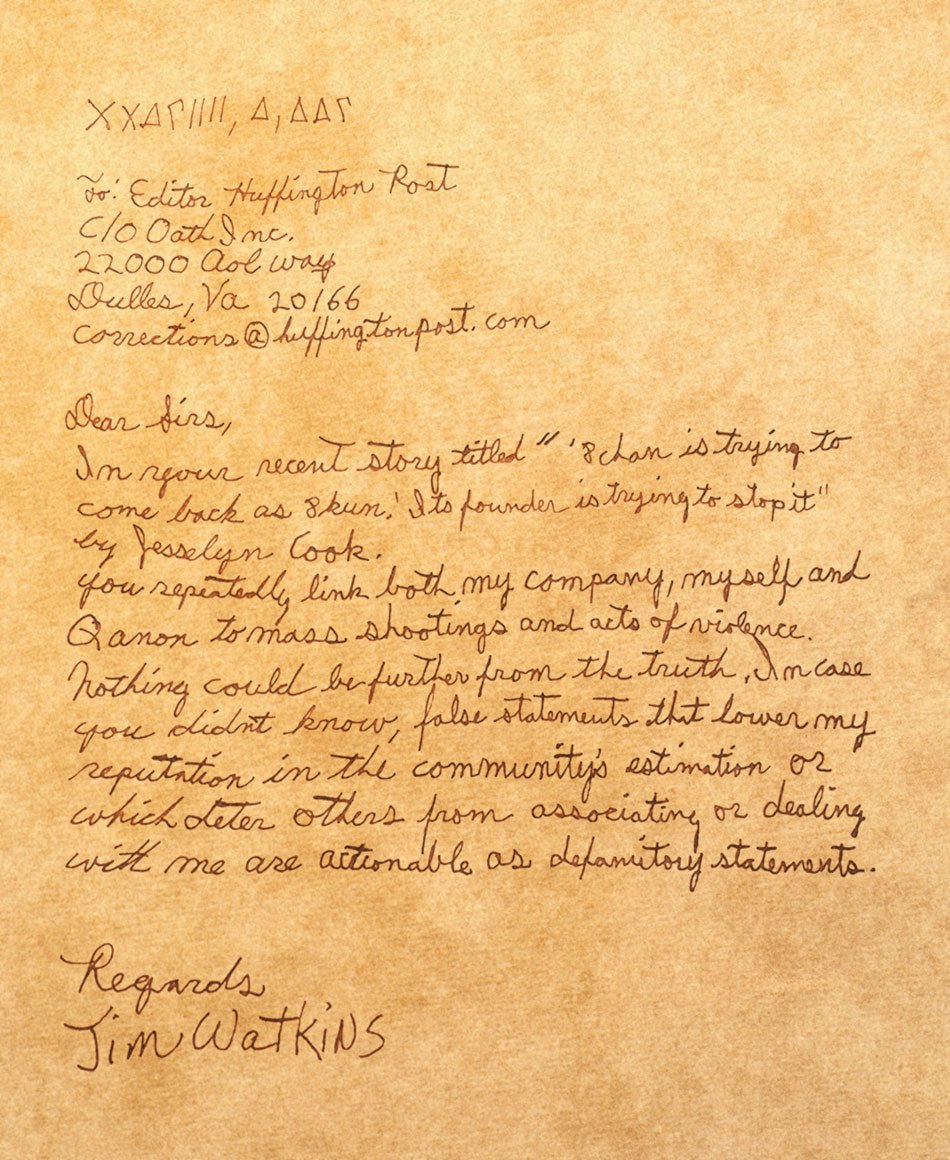 ΧΧΔΓΙΙΙΙ, Δ, ΔΔΓ
To: Editor Huffington Post
C/O Oath Inc.
22000 Aol way
Dulles, Va 20166
corrections@huffingtonpost.com
Dear Sirs,
In your recent story titled " '8chan is trying to
come back as 8kun.' Its founder is trying to stop it"
by Jesselyn Cook.
you repeatedly link both my company, myself and
Qanon to mass shootings and acts of violence.
Nothing could be further from the truth. In case
you didn't know, false statements that lower my
reputation in the community's estimation or
which deter others from associating or dealing
with me are actionable as defamitory statements.
Regards
Jim Watkins